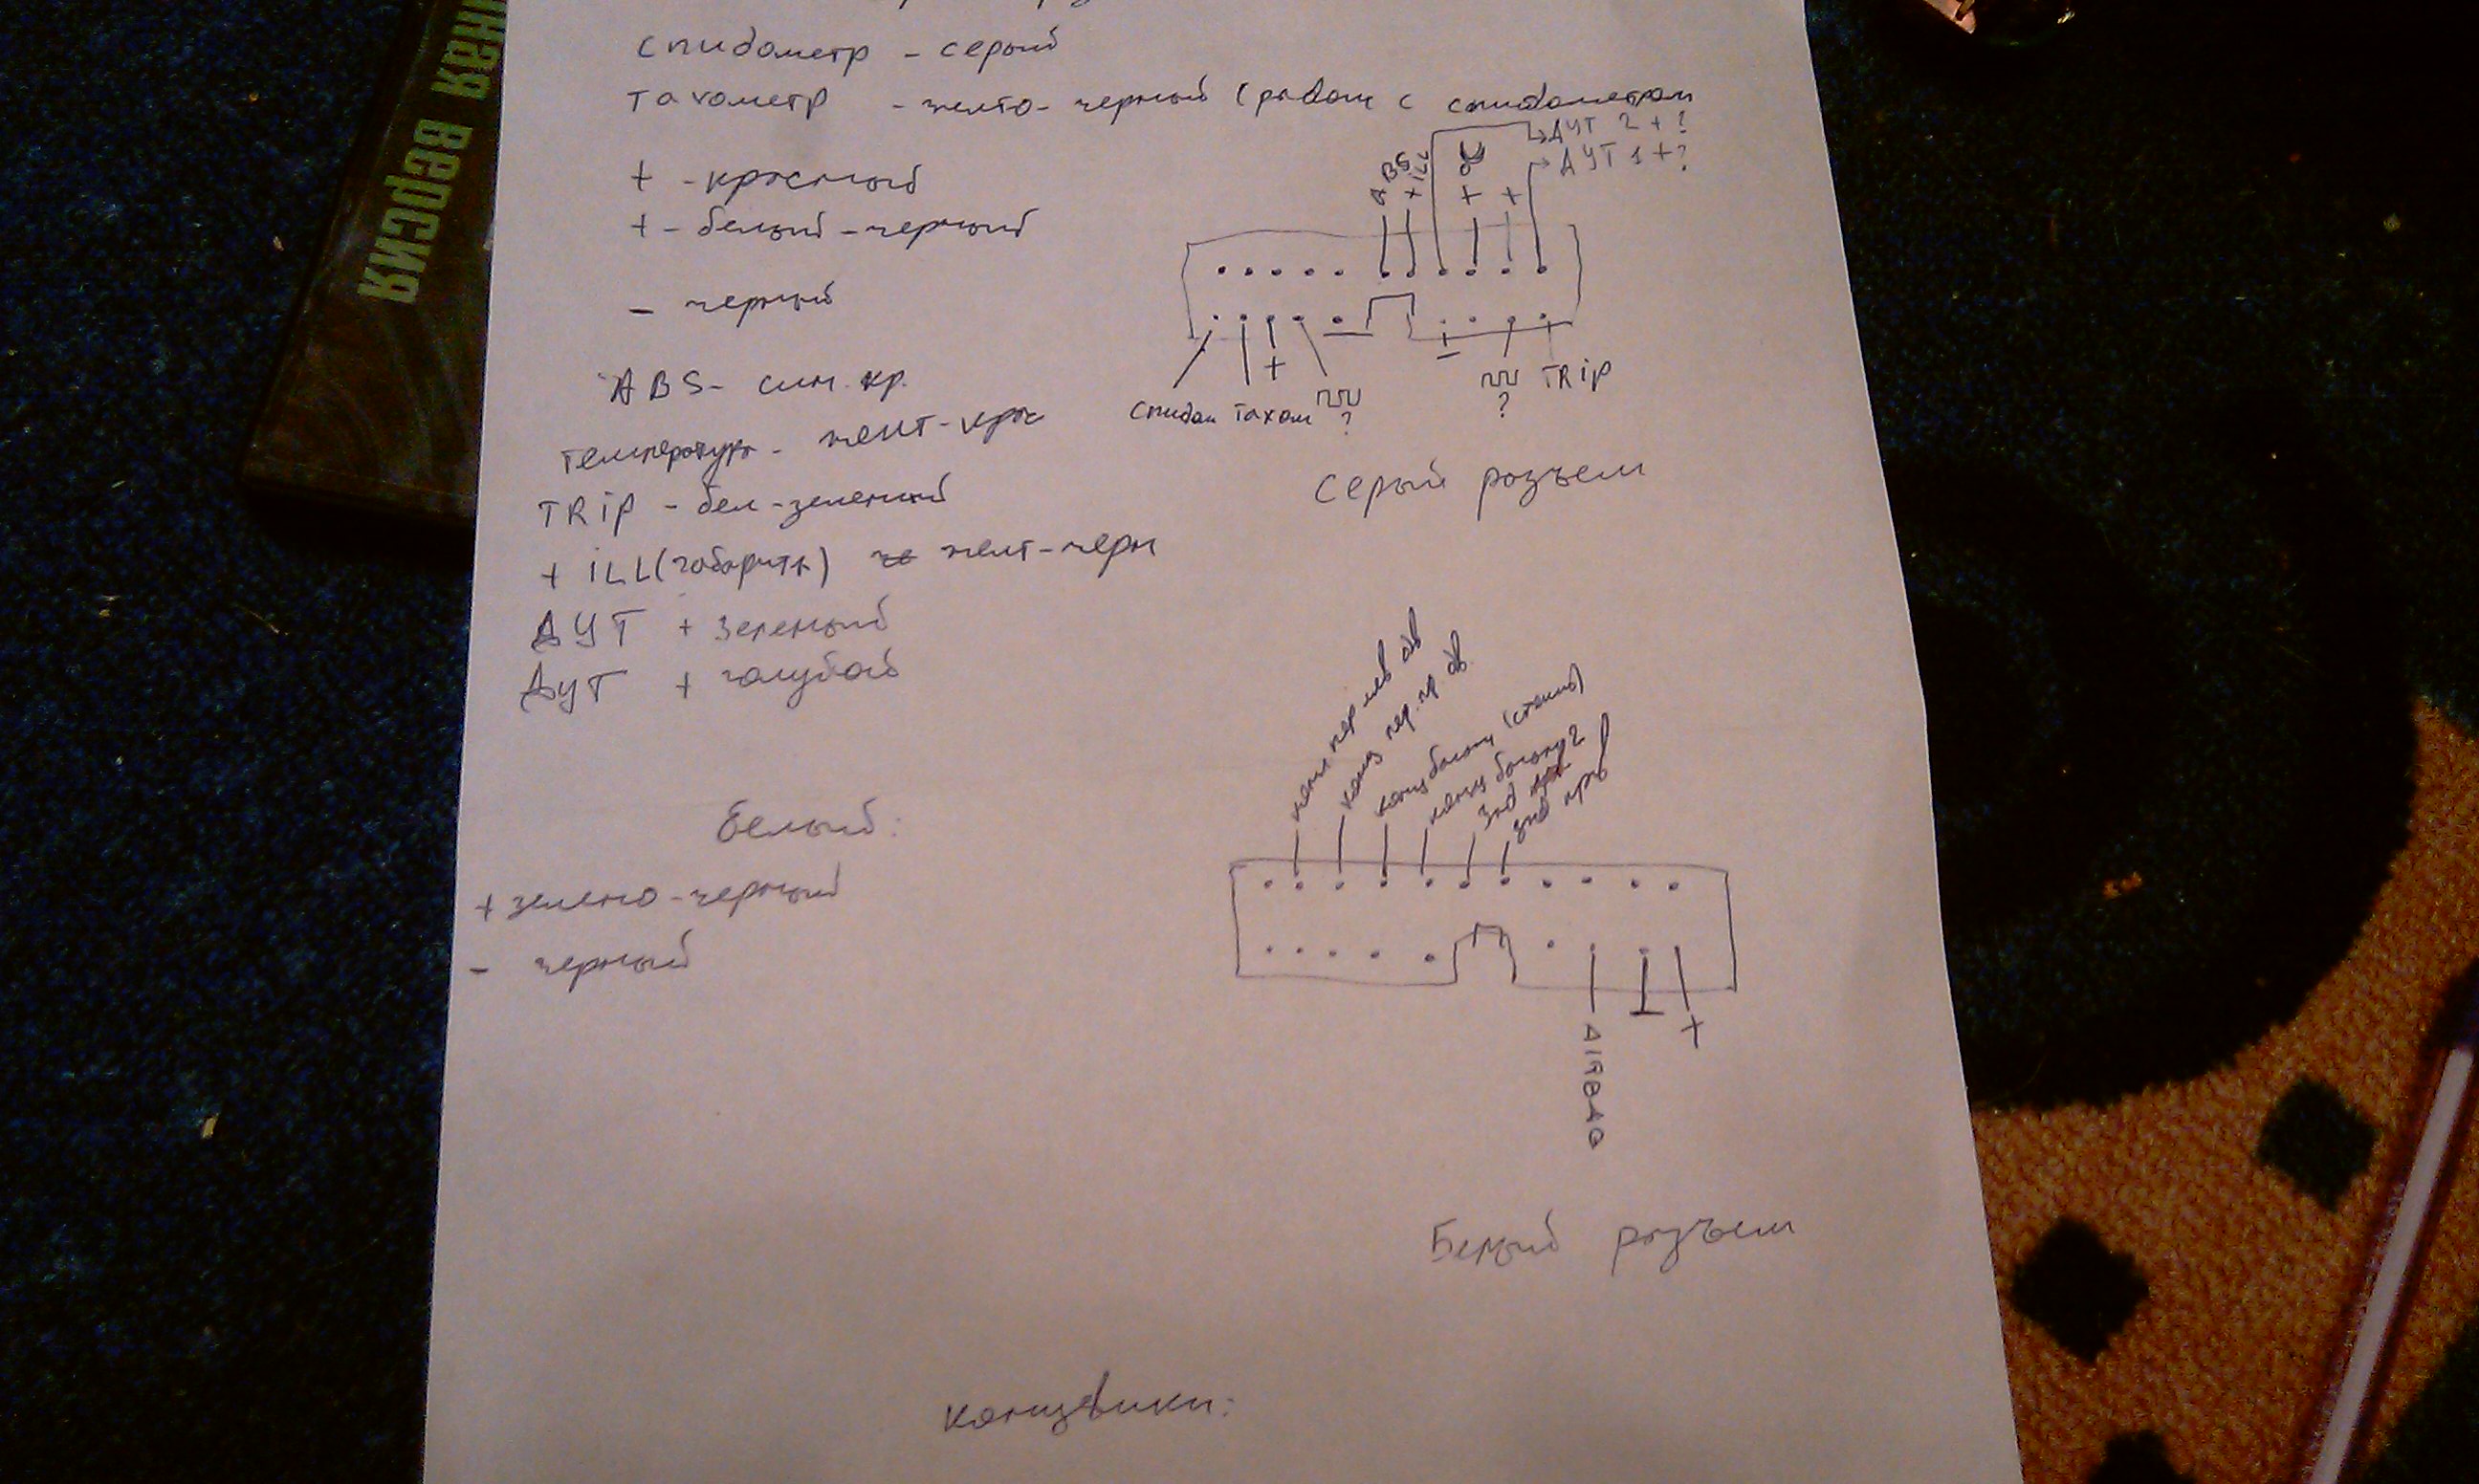 спидометр - серый
тахометр - желто-черный (рядом с спидометром
+ - красный
+ - белый-черный
- черный
ABS - син. кр.
температура - желт-крас
TRip - бел-зеленый
+ iLL (габариты) желт-черн
ДУТ + зеленый
ДУТ + голубой
ДУТ 2 + ?
ДУТ 1 + ?
ABS
+ iLL
+ +
+ -
спидом тахом ? ? TRip
Серый разъем
Белый:
+ зелено-черный
- черный
конц пер лев дв
конц пер. пр. дв.
конц багажн (стекло)
концу багажн 2
знд
знд прв
AIRBAG
+
Белый разъем
Концевики:
ная версия